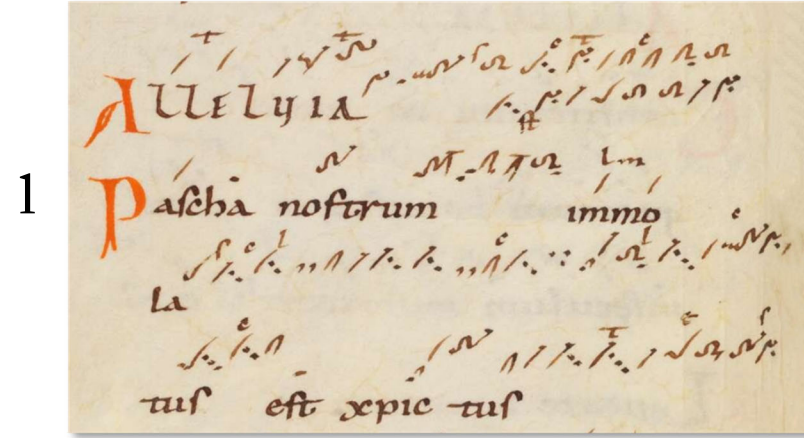 1
ALLELUIA
Pascha nostrum immo
la
tus est xpic tus